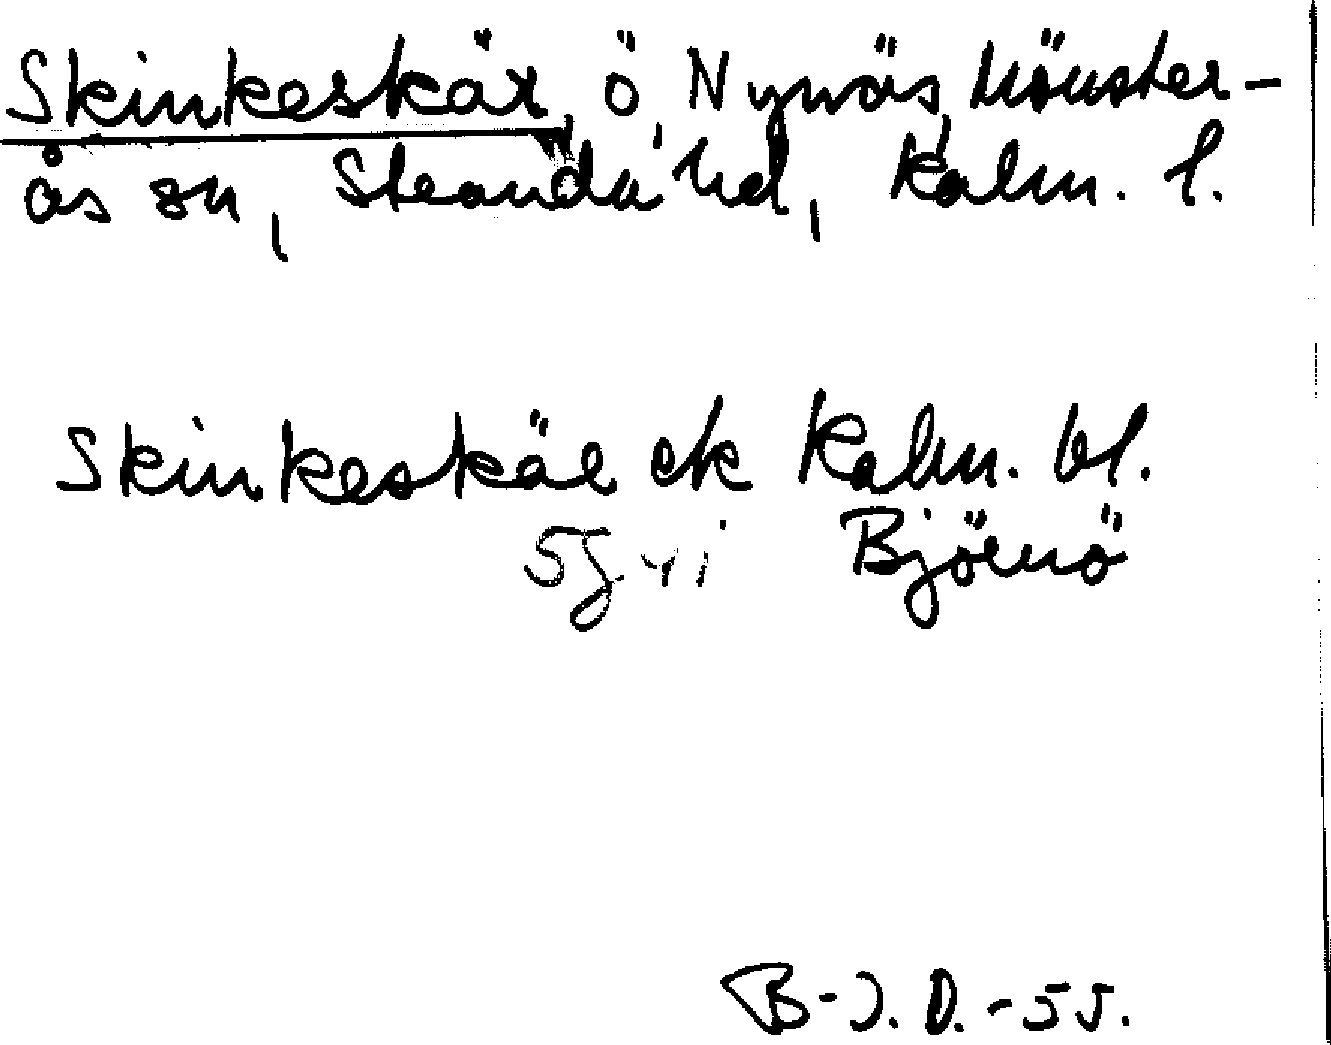 Skinkeskär, ö, Nynäs, Mönster-
ås sn, Stranda hd, Kalm. l.
Skinkeskär ek Kalm. bl.
5G Björnö
B-J. D. -55.